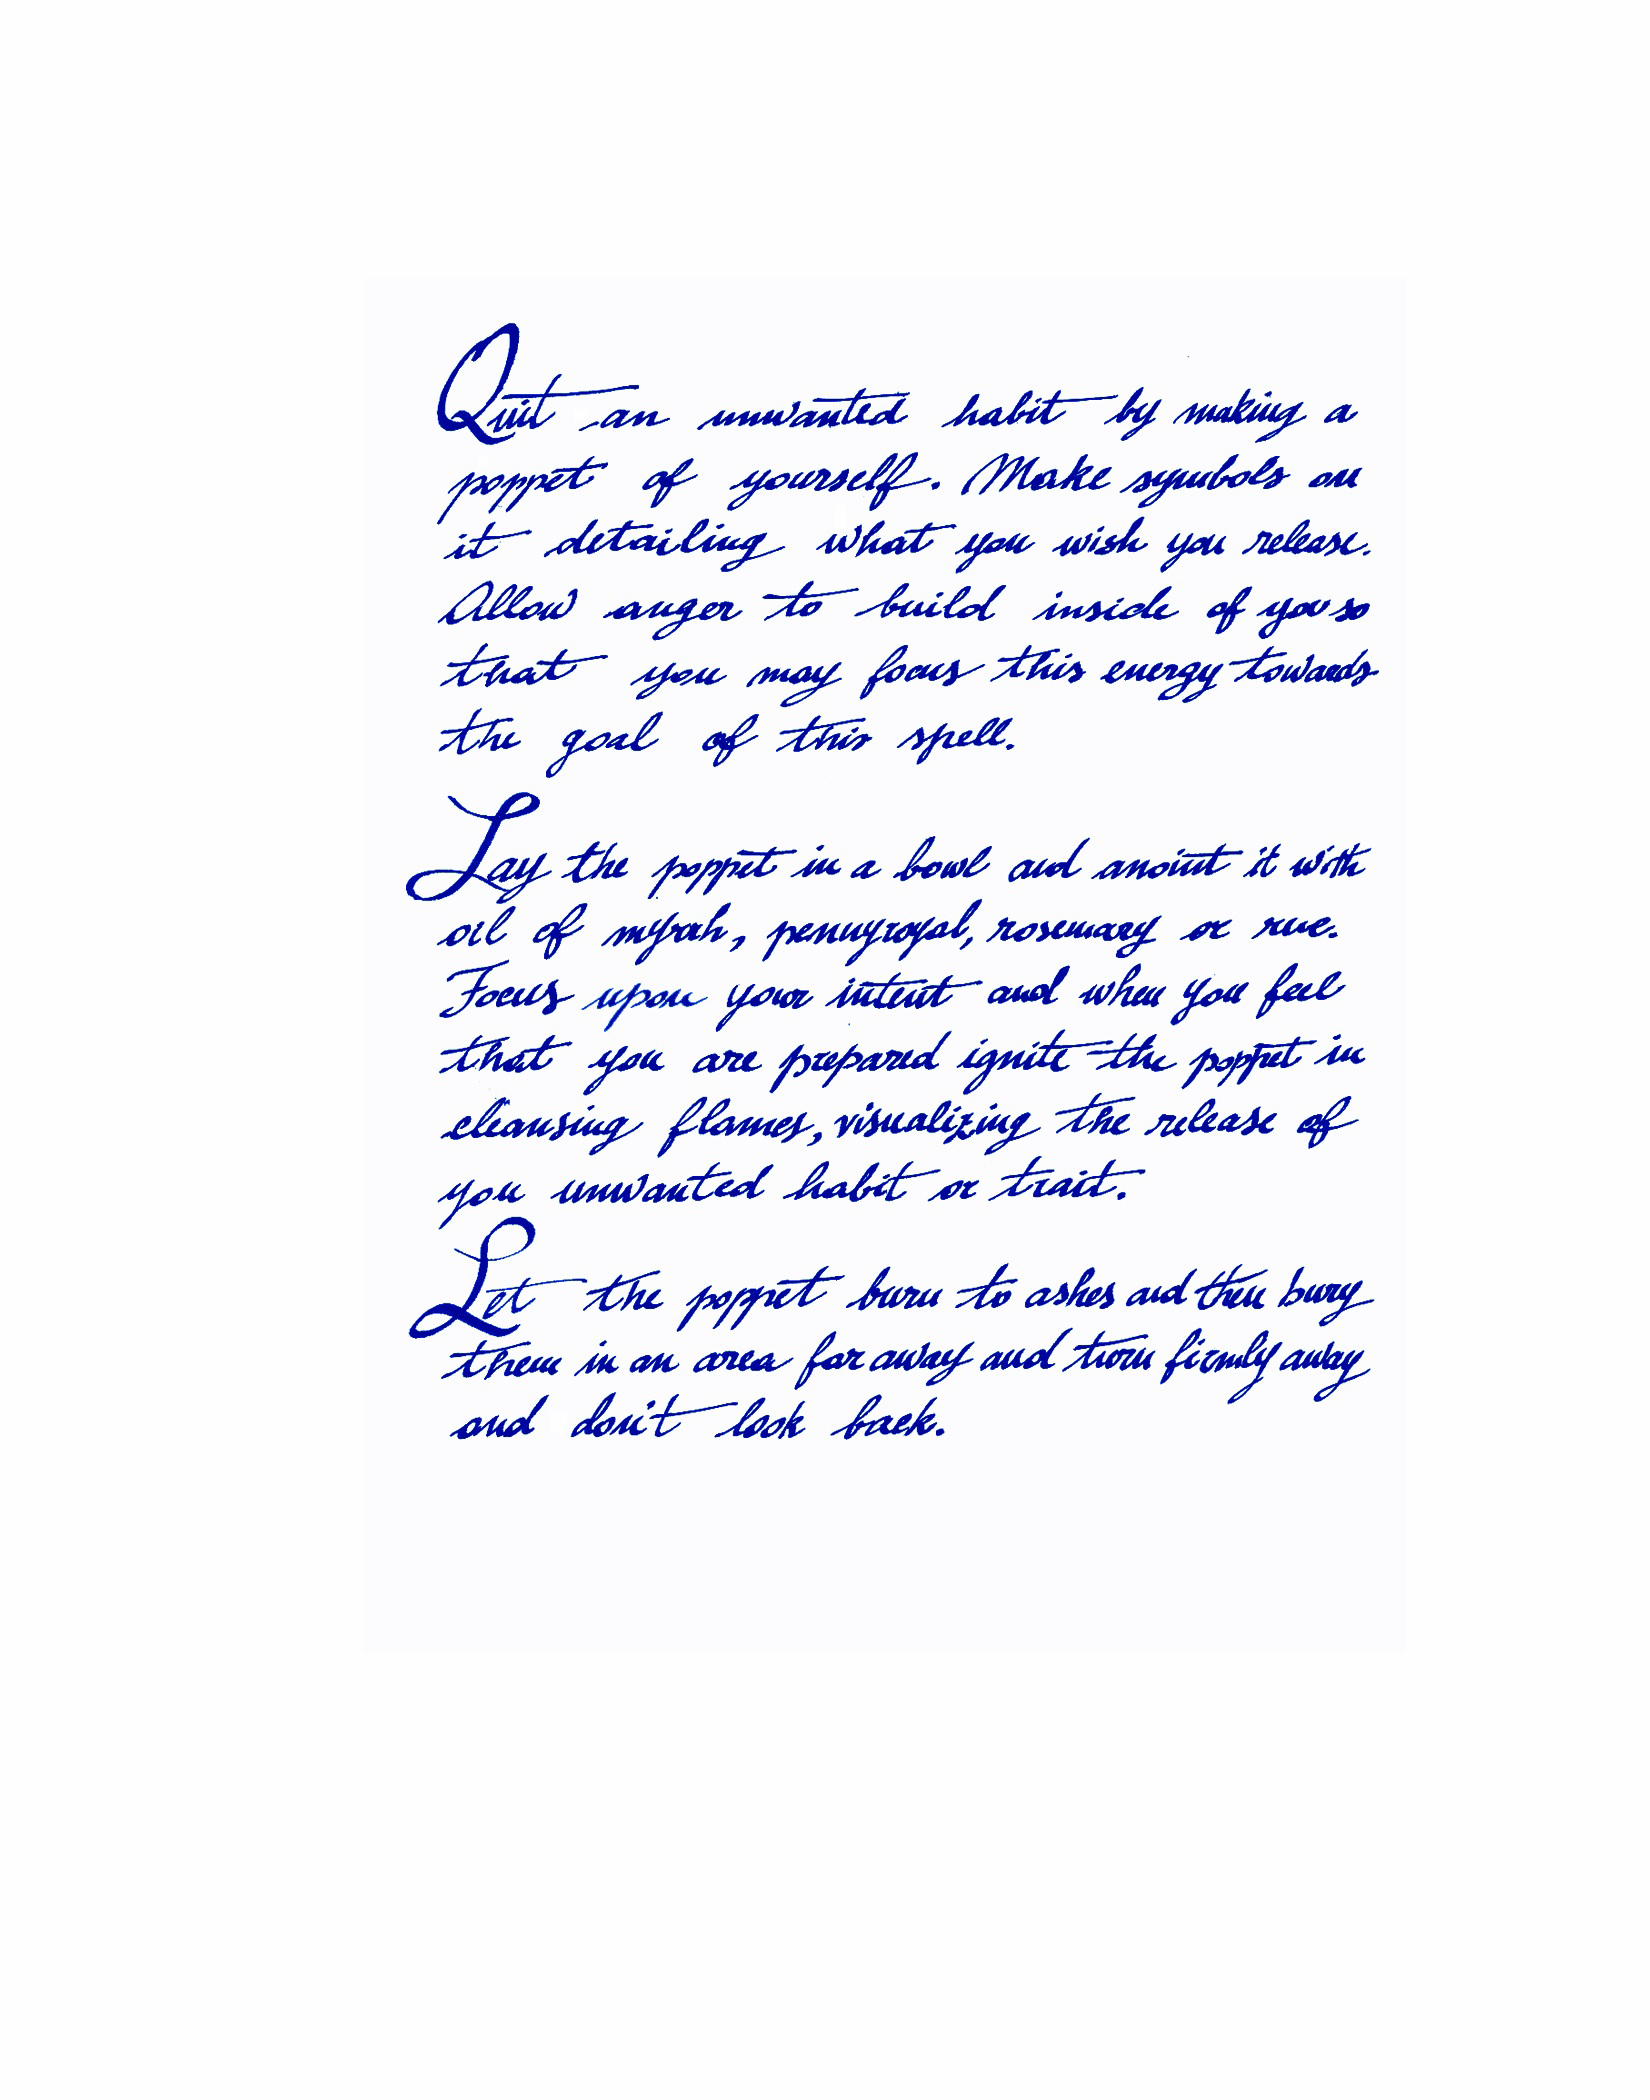 Quit an unwanted habit by making a
poppet of yourself. Make symbols on
it detailing what you wish you release.
Allow anger to build inside of you so
that you may focus this energy towards
the goal of this spell.
Lay the poppet in a bowl and anoint it with
oil of myrrh, pennyroyal, rosemary or rue.
Focus upon your intent and when you feel
that you are prepared ignite the poppet in
cleansing flames, visualizing the release of
you unwanted habit or trait.
Let the poppet burn to ashes and then bury
them in an area far away and turn firmly away
and don't look back.